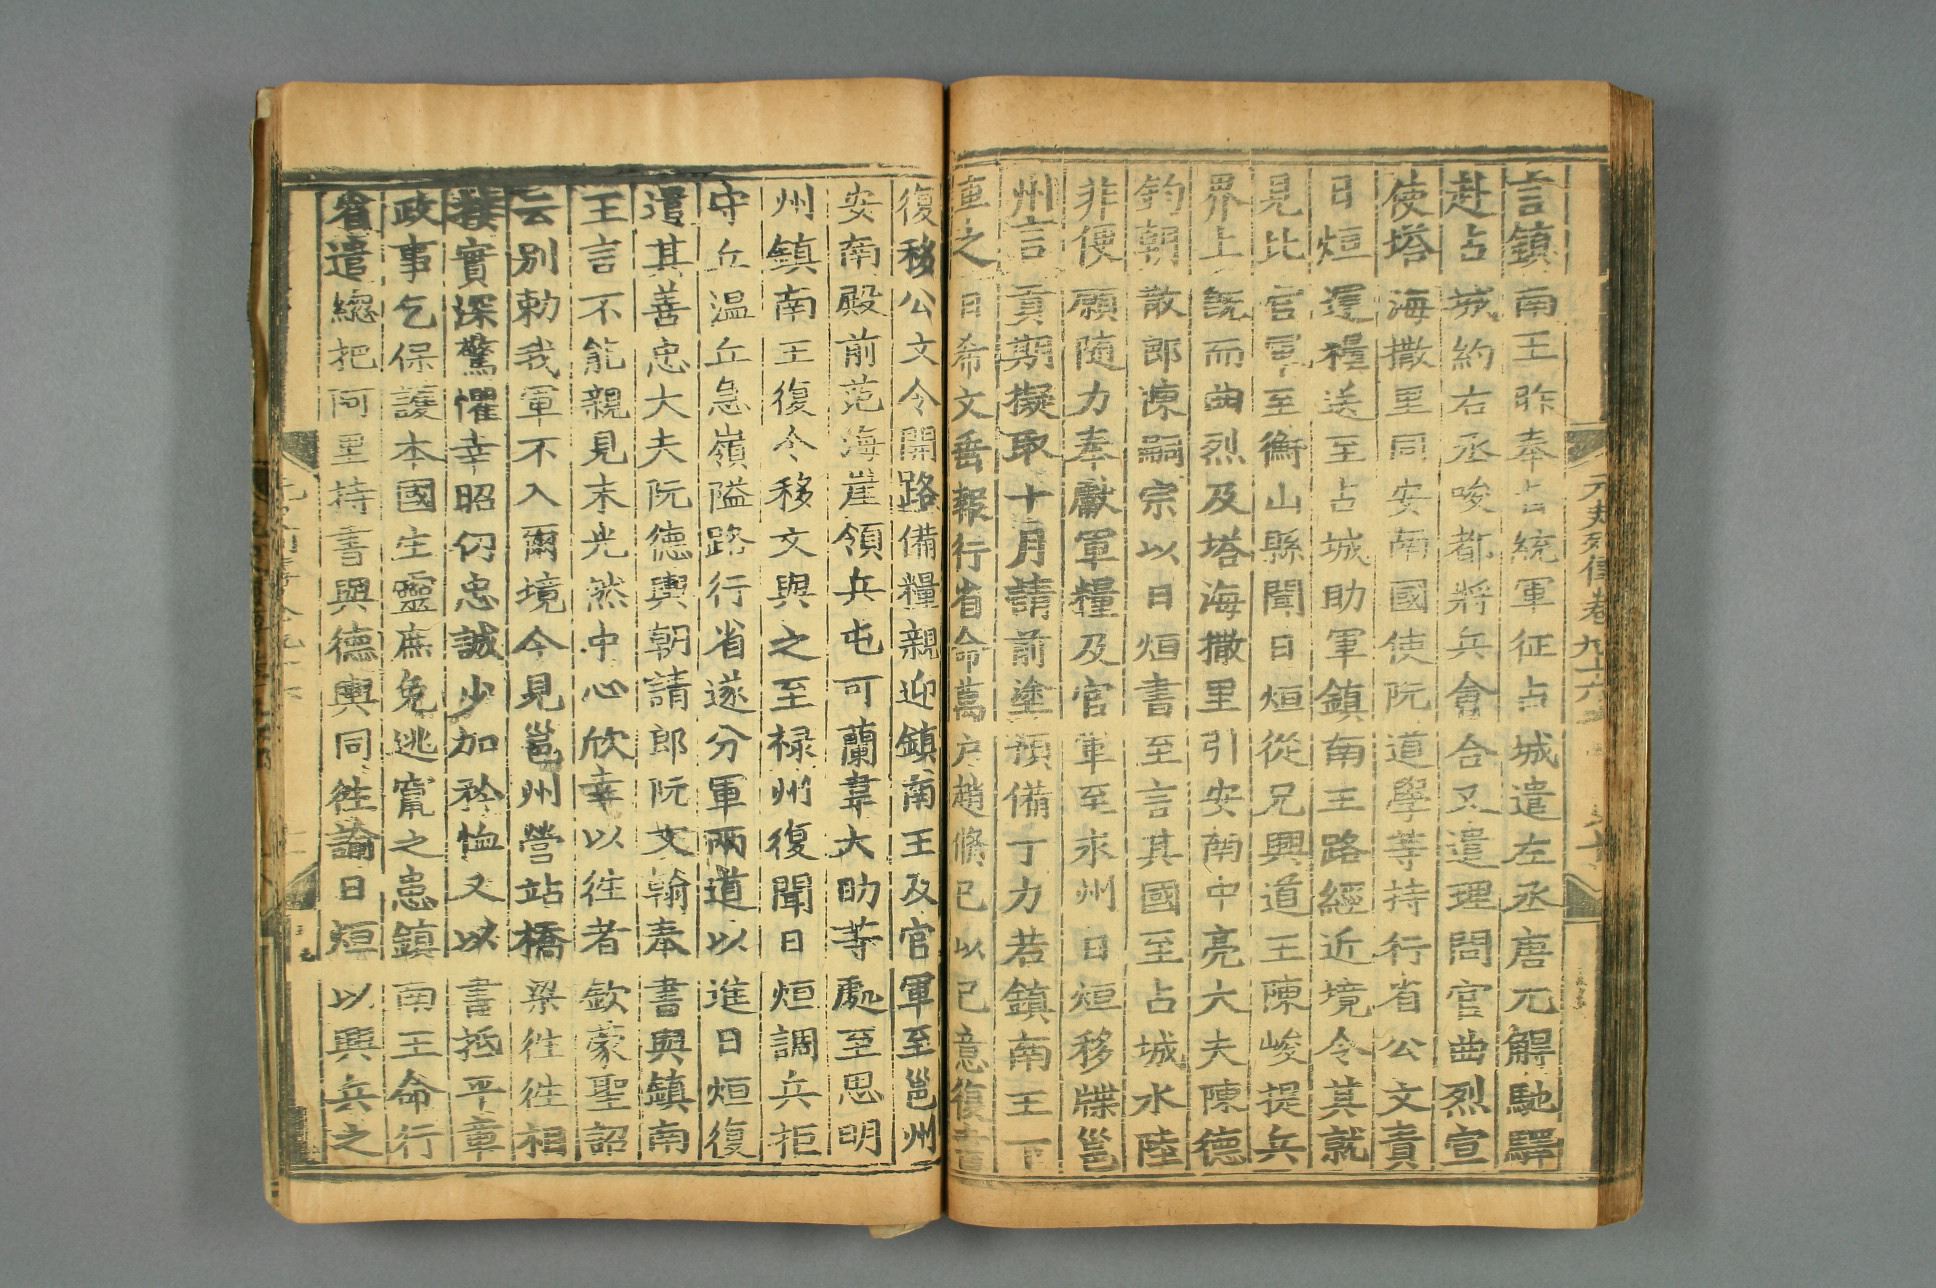 元史列傳卷九十六
言鎮南王昨奉旨統軍征占城遣左丞唐兀䚟馳驛
赴占城約右丞唆都將兵會合又遣理問官曲烈宣
使塔海撒里同安南國使阮道學等持行省公文責
日烜運糧送至占城助軍鎮南王路經近境令其就
見比官軍至衡山縣聞日烜從兄興道王陳峻提兵
界上旣而曲烈及塔海撒里引安南中亮大夫陳德
鈞朝散郎陳嗣宗以日烜書至言其國至占城水陸
非便願隨力奉獻軍糧及官軍至永州日烜移牒邕
州言貢期擬取十月請前塗預備丁力若鎮南王下
車之日希文垂報行省命萬戶趙脩己以己意復書
復移公文令開路備糧親迎鎮南王及官軍至邕州
安南殿前范海崖領兵屯可蘭韋大助等處至思明
州鎮南王復令移文與之至祿州復聞日烜調兵拒
守丘温丘急嶺隘路行省遂分軍兩道以進日烜復
遣其善忠大夫阮德輿朝請郎阮文翰奉書與鎮南
王言不能親見末光然中心欣幸以徃者欽蒙聖詔
云別勅我軍不入爾境今見邕州營站橋梁徃徃相
接實深驚懼幸昭仞忠誠少加矜恤又以書抵平章
政事乞保護本國生靈庶免逃竄之患鎮南王命行
省遣總把阿里持書與德輿同徃諭日烜以興兵之